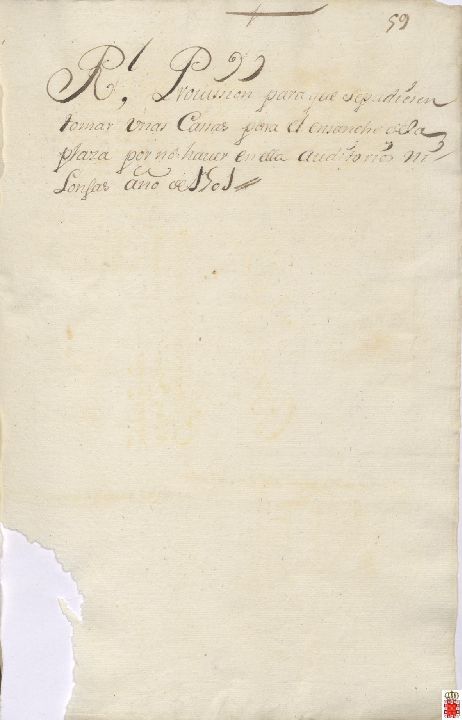 59
Rl, Provission para que se pudiesen
tomar Unas Casas para el ensanche de la
plaza por no haver en ella auditorios ni
Lonjas año de 1501